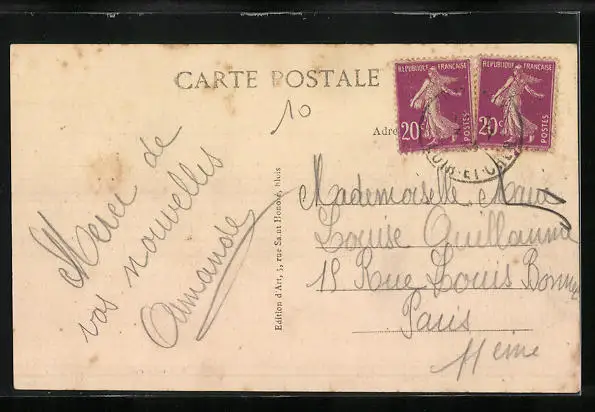 CARTE POSTALE
10
REPUBLIQUE FRANÇAISE
20c
POSTES
REPUBLIQUE FRANÇAISE
20c
POSTES
LOIR-ET-CHER
Adre
Merci de
vos nouvelles
Armande
Edition d'Art, 3, rue Saint Honoré, Blois
Mademoiselle Marie
Louise Guillaume
18 Rue Louis Bonnet
Paris
11eme